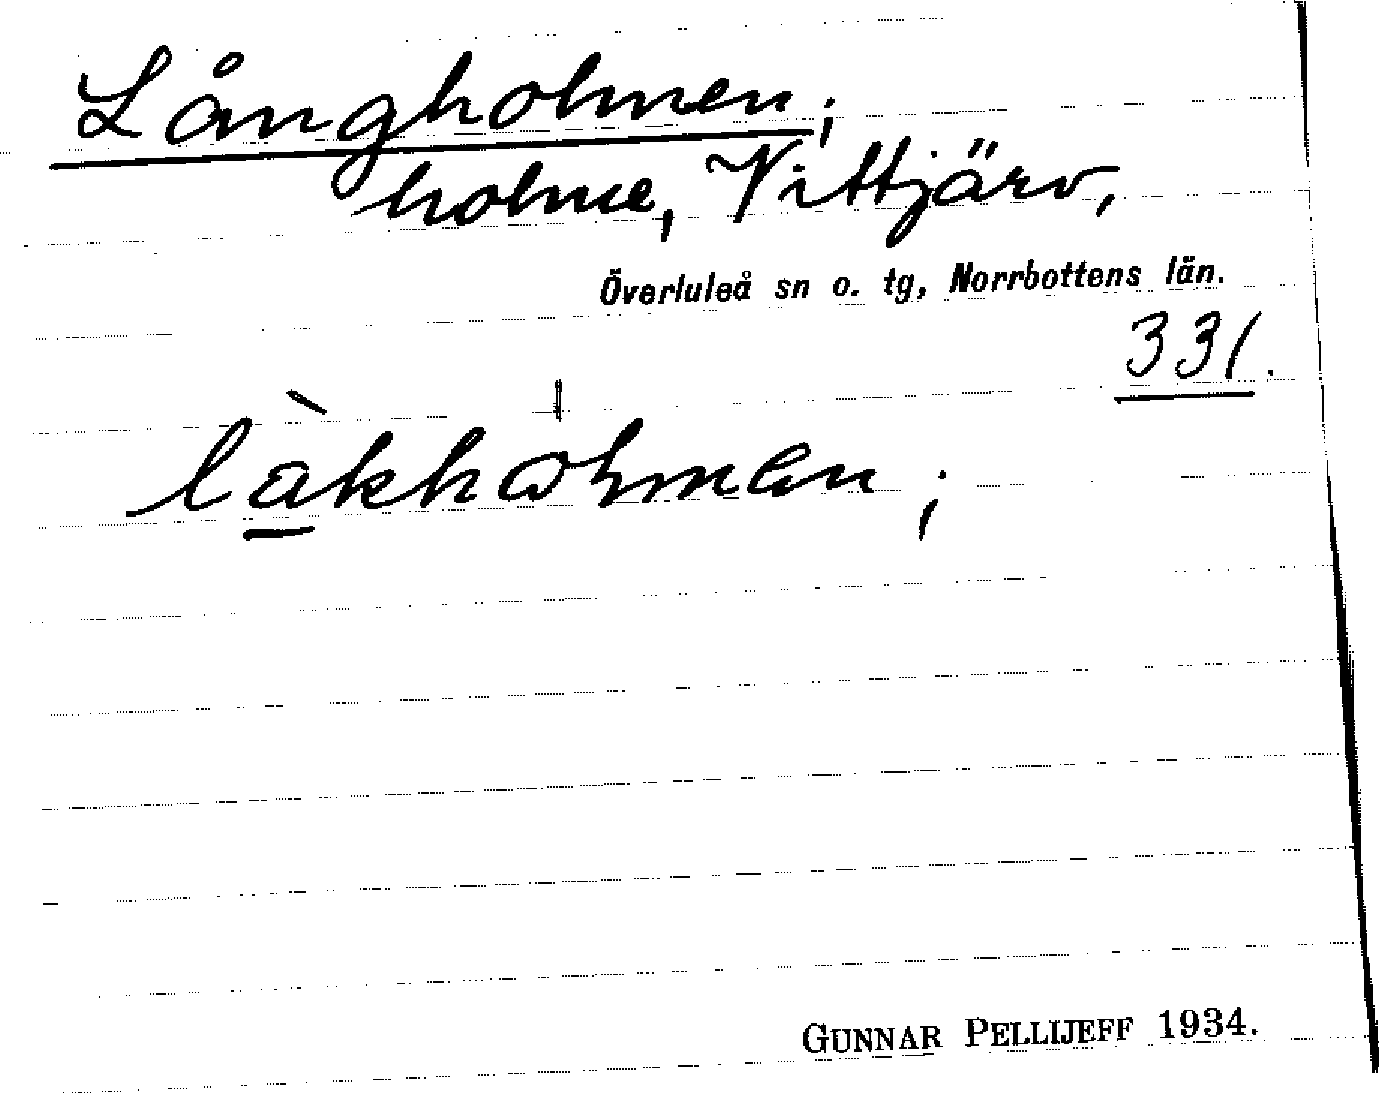 Långholmen;
holme, Vittjärv,
Överluleå sn o. tg, Norrbottens län.
331.
làkhɷlmen;
GUNNAR PELLIJEFF 1934.